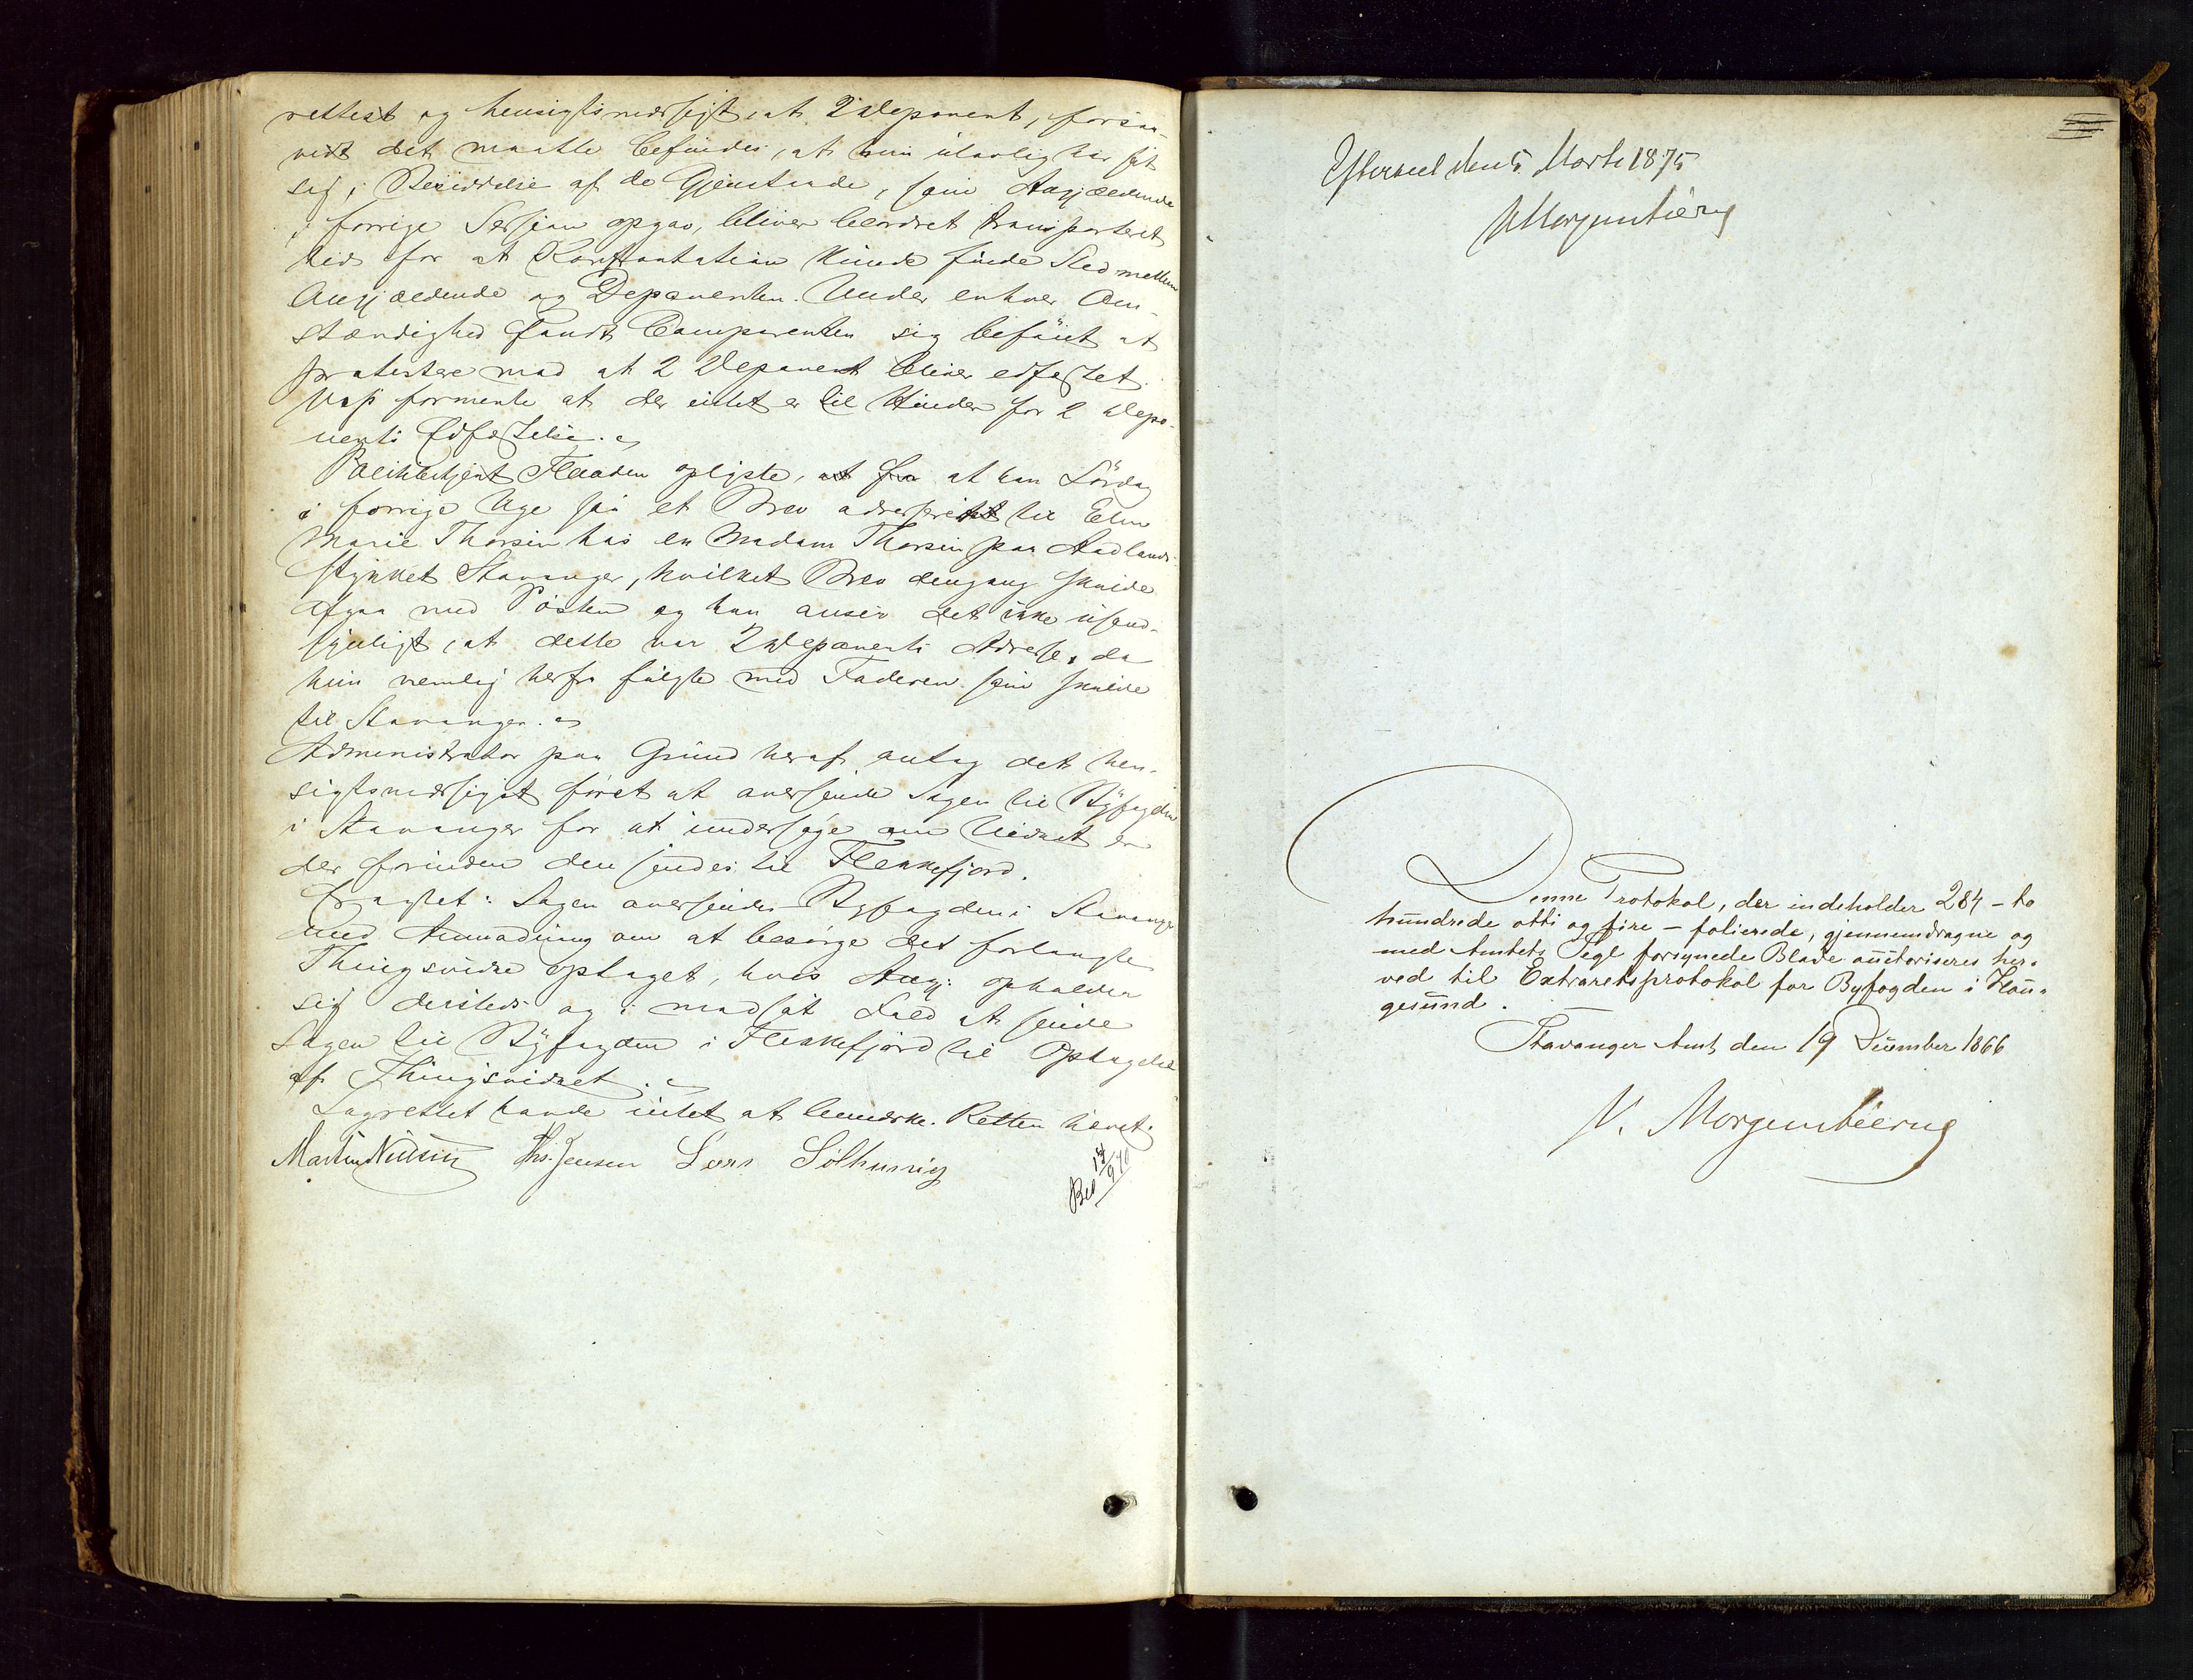 rettest og hensigtsmæssigt, at 2 Deponent, forsaa-
vidt det maatte befindes, at hun ulovlig har sat
sig i Besiddelse af de Gjenstande, som Angjældende
i forrige Session opgav, bliver beordret transporteret
hid for at Konfrontation kunde finde Sted mellem
Angjældende og Deponenten. Under enhver Om-
stændighed fandt Comparenten sig beføiet at
protestere mod at 2 Deponent bliver edfæstet.
formente at der intet er til Hinder for 2 Depo-
nents Edfæstelse.
Politibetjent Flaaden oplyste, at fra at han Lørdag
i forrige Uge saa et Brev adresseret til Elen
Marie Thorsen hos en Madam Thorsen paa Aadlands-
stykket Stavanger, hvilket Brev dengang skulde
afgaa med Posten og han anser det ikke usand-
synligt, at dette var 2 Deponents Adresse, da
hun nemlig herfra fulgte med Faderen som skulde
til Stavanger.
Administrator paa Grund heraf antog det hen-
sigtsmæssigst først at oversende Sagen til Byfogden
i Stavanger for at undersøge om Vidnet er
der forinden den sendes til Flekkefjord.
Eragtet: Sagen oversendes Byfogden i Stavanger
med Anmodning om at besørge det forlangte
Thingsvidne optaget, hvis Angj: opholder
sig dersteds og i modsat Fald at sende
Sagen til Byfogden i Flekkefjord til Optagelse
af Thingsvidnet.
Lagrettet havde intet at bemærke. Retten hævet.
Martin Nielsen Ths. Jensen Lars Sølhusvig
Efterseet den 5. Marts 1875
V Morgenstierne
Denne Protokol, der indeholder 284 - to
hundrede otti og fire - folierede, gjennemdragne og
med Amtets Segl forsynede Blade auctoriseres her-
ved til Extraretsprotokol for Byfogden i Hau-
gesund.
Stavanger Amt, den 19 December 1866
V. Morgenstierne